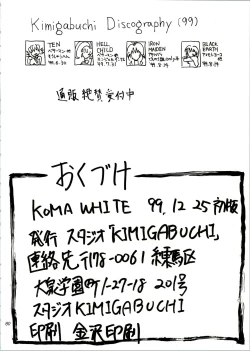 Kimigabuchi Discography (99)
TEN
99.8.30
HELL CHILD
99.7.31
IRON MAIDEN
99.8.14
BLACK EARTH
99.8.14
通販絶賛受付中
おくづけ
KOMA WHITE 99.12.25 初版
発行 スタジオ「KIMIGABUCHI」
連絡先 〒178-0061 練馬区
大泉学園町1-27-18 201号
スタジオKIMIGABUCHI
印刷 金沢印刷